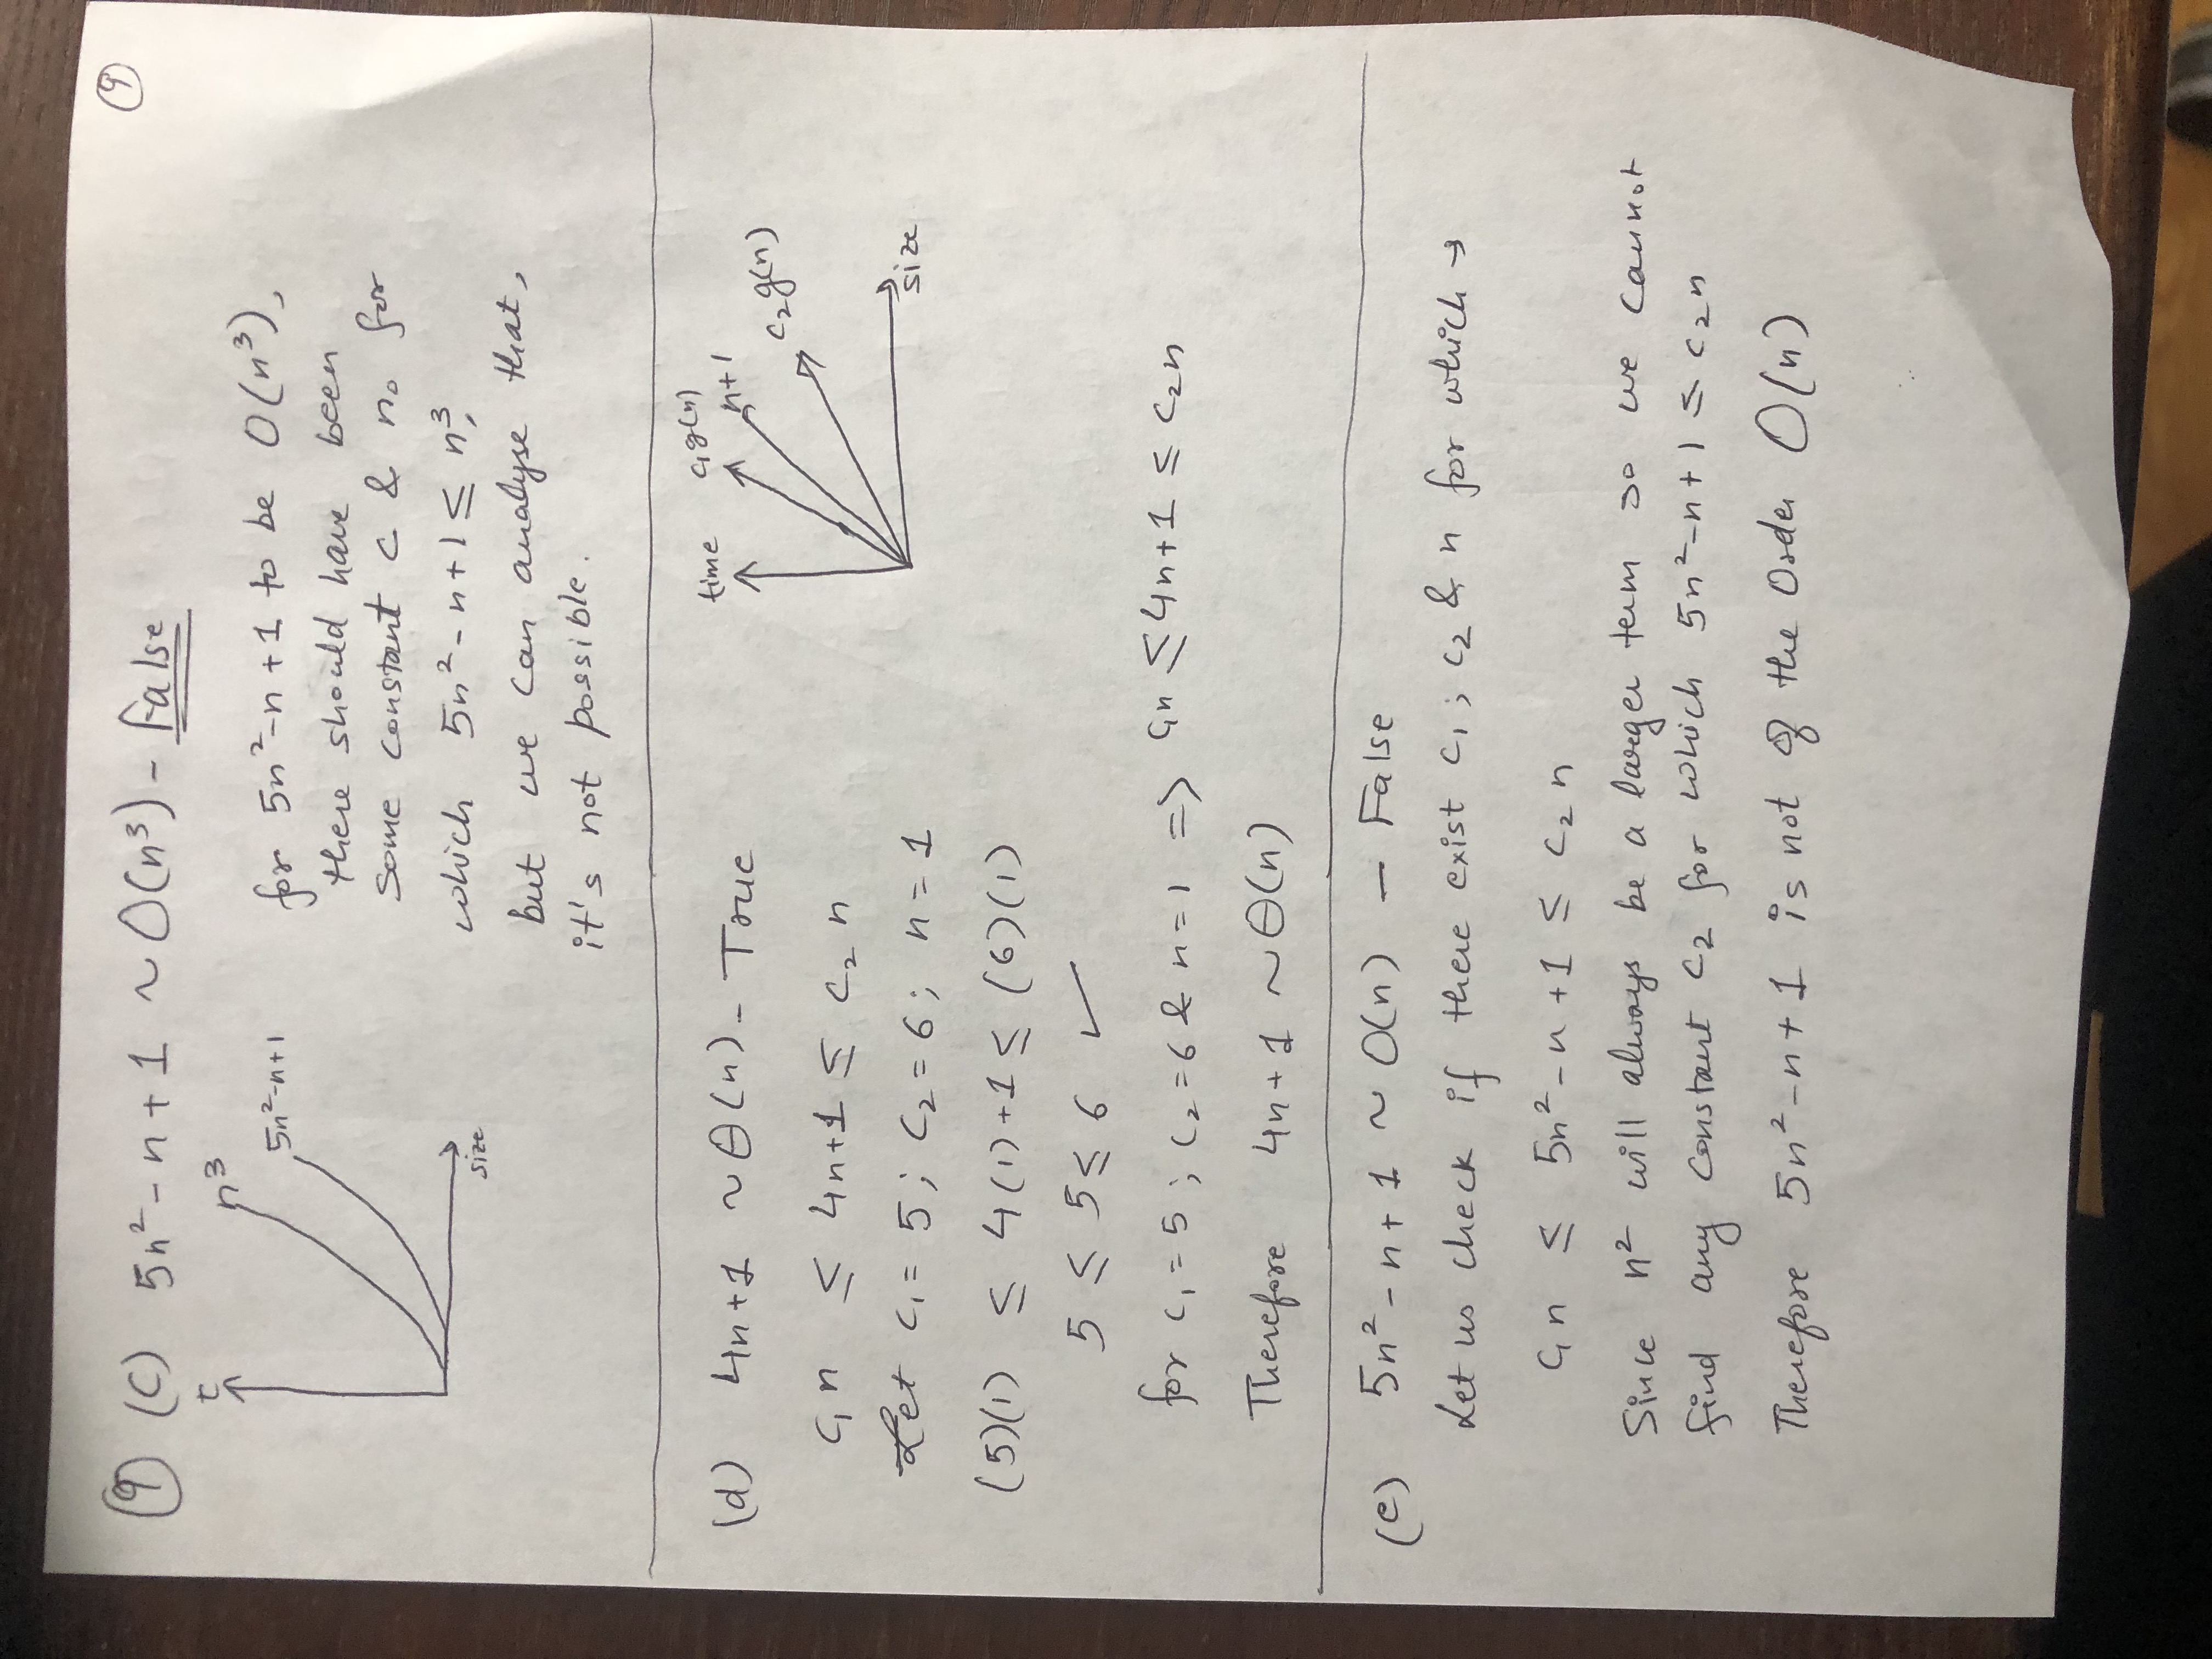 ⑨ (C) 5n²-n+1 ~ O(n³) - False
⑨
t
n³
5n²-n+1
size
for 5n²-n+1 to be O(n³),
there should have been
some constant c & n₀ for
which 5n²-n+1 ≤ n³,
but we can analyse that,
it's not possible.
(d) 4n+1 ~ θ(n) - True
time
c₁g(n)
n+1
c₂g(n)
size
c₁n ≤ 4n+1 ≤ c₂n
Let c₁ = 5; c₂ = 6; n = 1
(5)(1) ≤ 4(1)+1 ≤ (6)(1)
5 ≤ 5 ≤ 6 ✓
for c₁ = 5; c₂ = 6 & n = 1 => c₁n ≤ 4n+1 ≤ c₂n
Therefore 4n+1 ~ θ(n)
(e) 5n²-n+1 ~ O(n) - False
Let us check if there exist c₁; c₂ & n for which →
c₁n ≤ 5n²-n+1 ≤ c₂n
Since n² will always be a larger term so we cannot
find any constant c₂ for which 5n²-n+1 ≤ c₂n
Therefore 5n²-n+1 is not of the Order O(n)